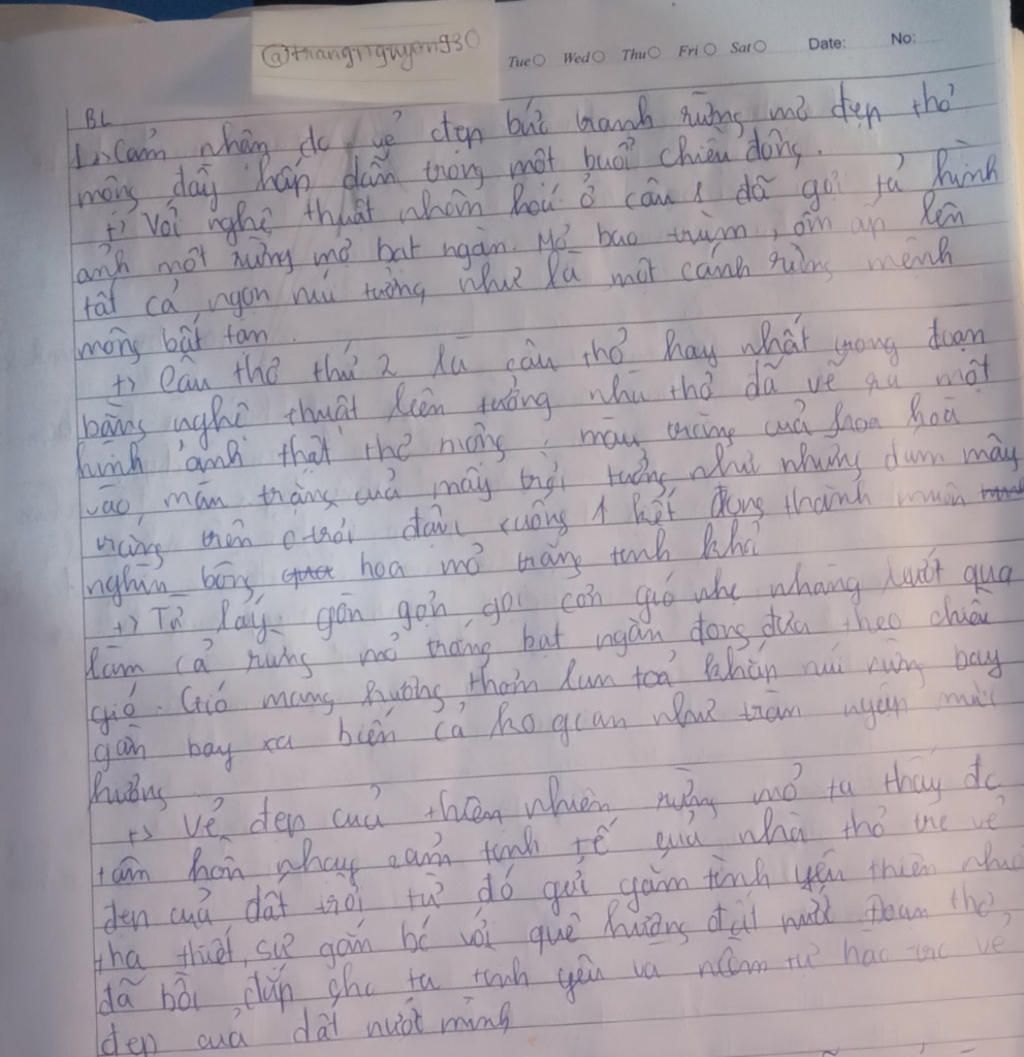 @thangnguyen930
Tue Wed Thu Fri Sat Date: No:
BL
1>> Cảm nhận dc vẻ đẹp bức tranh rừng mơ đẹp thơ
mộng đầy hấp dẫn trong một buổi chiều đông.
+> Với nghệ thuật nhân hoá ở câu 1 đã gợi tả hình
ảnh một rừng mơ bạt ngàn. Mơ bao trùm, ôm ấp lên
tất cả ngọn núi tưởng như là một cánh rừng mênh
mông bất tận.
+> Câu thơ thứ 2 là câu thơ hay nhất trong đoạn
bằng nghệ thuật liên tưởng nhà thơ đã vẽ ra một
hình ảnh thật thơ mộng, màu trắng của hoa hoà
vào màn trắng của mây trời tưởng như những đám mây
trắng trên trời đậu xuống kết đọng thành muôn
nghìn bông hoa mơ trắng tinh khôi
+> Từ láy gờn gợn gợi cơn gió nhẹ nhàng lướt qua
làm cả rừng mơ trắng bạt ngàn đong đưa theo chiều
gió. Gió mang hương thơm lan toả khắp núi rừng bay
gần bay xa biến cả ko gian như tràn ngập mùi
hương
+> Vẻ đẹp của thiên nhiên rừng mơ ta thấy dc
tâm hồn nhạy cảm tinh tế của nhà thơ trc vẻ
đẹp của đất trời từ đó gửi gắm tình yêu thiên nhiên
tha thiết, sự gắn bó với quê hương đất nước. Đoạn thơ
đã bồi đắp cho ta tình yêu và niềm tự hào trc vẻ
đẹp của đất nước mình